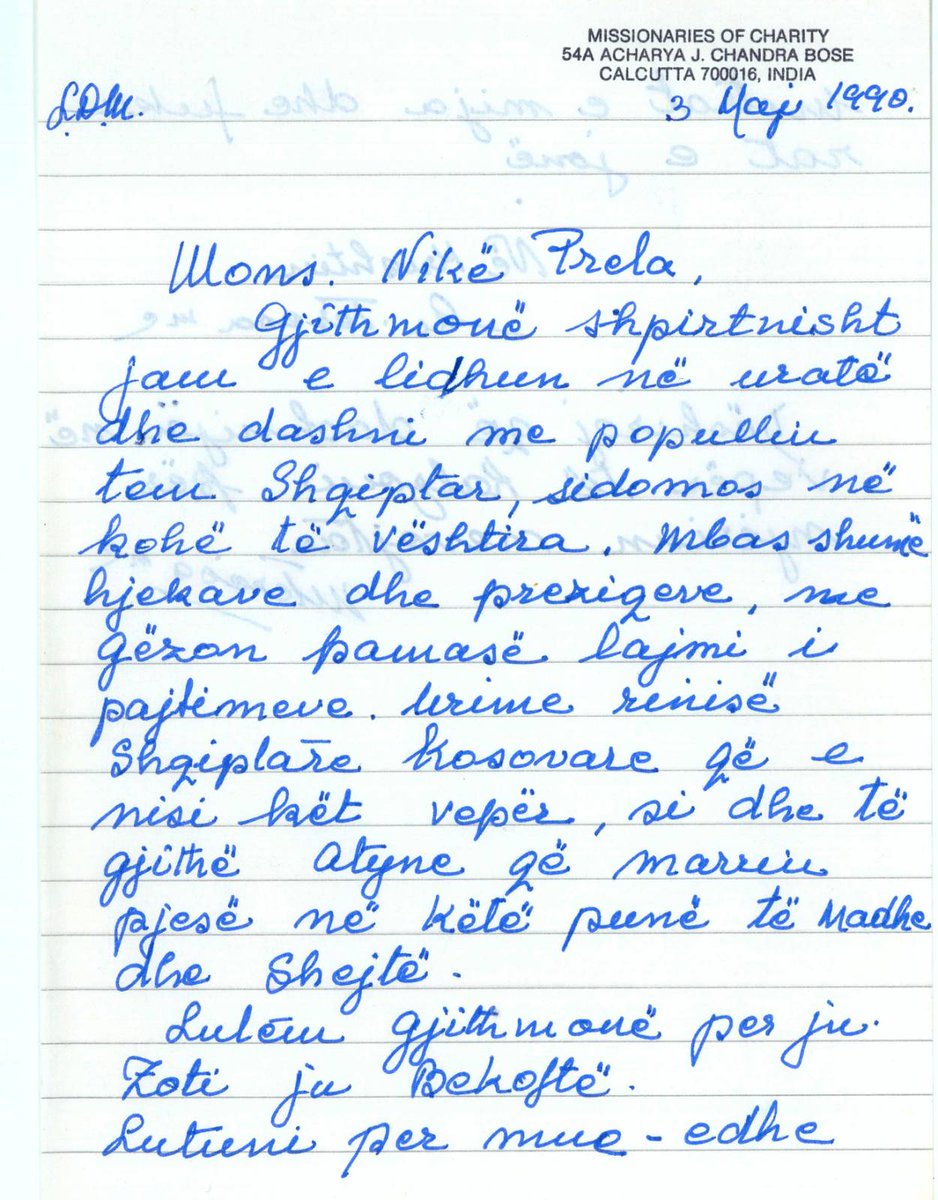 MISSIONARIES OF CHARITY
54A ACHARYA J. CHANDRA BOSE
CALCUTTA 700016, INDIA
L.D.M. 3 Maji 1990.
Mons. Nikë Prela,
Gjithmonë shpirtnisht
jam e lidhun në uratë
dhe dashni me popullin
tem Shqiptar, sidomos në
kohë të vështira. Mbas shumë
hjekave dhe prezigeve, me
gëzon pamasë lajmi i
pajtimeve. Urime rinisë
Shqiptare Kosovare që e
nisi kët vepër, si dhe të
gjithë Atyne që marrin
pjesë në këtë punë të Madhe
dhe Shejtë.
Lutëm gjithmonë per ju.
Zoti ju Bekoftë.
Lutuni per mue - edhe